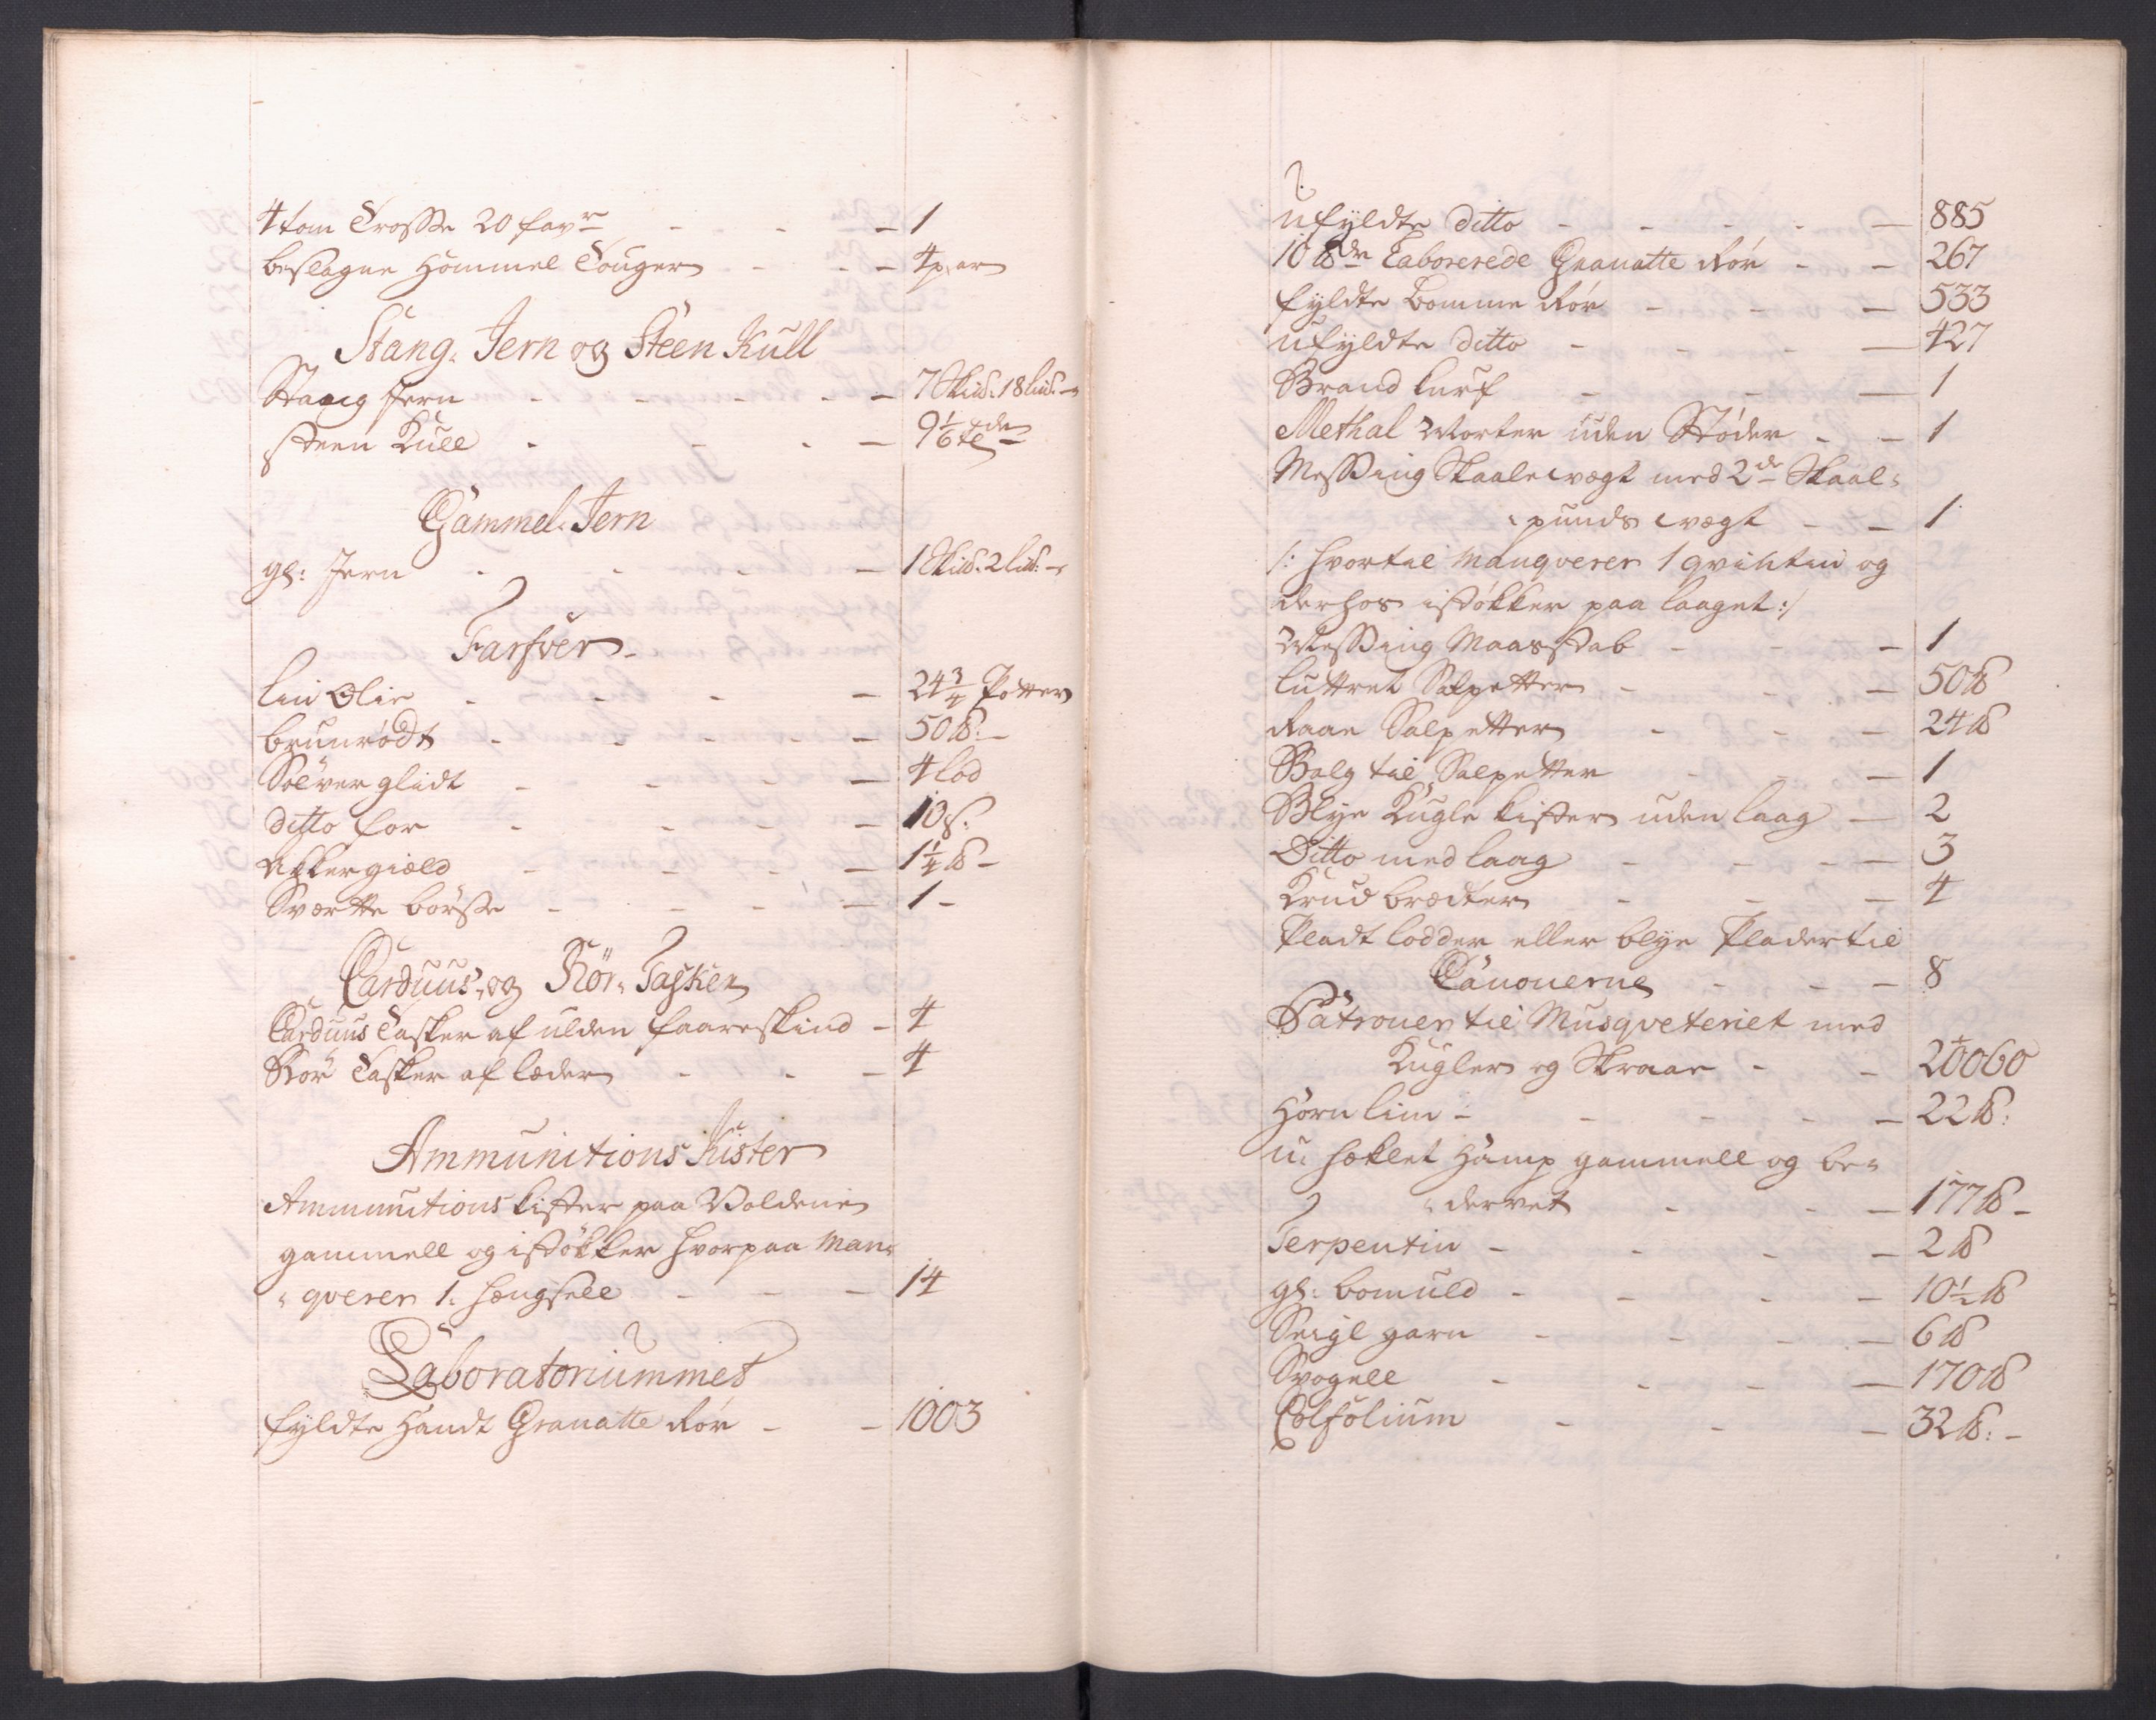 4 tom Trosse 20 favn - - - 1
beslagne Hommel Touger - - - 4 par
Stang-Jern og Steen Kull
Stang Jern - - - - - 7 Skid: 18 lid:
steen Kull - - - - 9 1/6 tde
Gammel-Jern
gl: Jern - - - - 1 Skid: 2 lid:
Farfver
Lin Olie - - - - 24 3/4 Potter
brunrødt - - - - - 50 ℔: -
Sølver glidt - - - - 4 lod
ditto for - - - - 10 s.
Akkergield - - - - 1 1/4 ℔ -
Sværtte børste - - - - 1 -
Carduus- og Rør-Tasker
Carduus Tasker af ulden faareskind - 4
Rør Tasker af læder - - - 4
Ammunitions Kister
Ammunitions kister paa Voldene
gammell og istøkker hvorpaa Man-
-qverer 1. hengsell - - - 14
Laboratoriummet
fyldte Handt Granatte Rør - - 1003
ufyldte ditto - - - - - 885
10 ℔dr Laborerede Granatte Rør - - 267
fyldte Bomme Rør - - - 533
ufyldte ditto - - - - 427
Brand kurf - - - 1
Methal Morter uden Støder - - 1
Messing Skaalevægt med 2de Skaal-
-punds vægt - - 1
/: hvortil Manqverer 1 qvintin og
derhos istøkker paa laaget :/
Messing Maasstab - - - 1
luttret Salpetter - - - 50 ℔
Raae Salpetter - - - 24 ℔
Balg til Salpetter - - - 1
Blye Kugle kister uden laag - 2
Ditto med laag - - - - 3
Krud brædter - - - 4
Pladt lodder eller blye Plader til
Canonerne - - - 8
Patroner til Musqveteriet med
Kugler og Skraae - - 20060
Horn lim - - - - - 22 ℔:
u: heklet Hamp gammell og be-
-dervet - - - 177 ℔ -
Terpentin - - - - 2 ℔
gl: bomuld - - - - 10 1/2 ℔
Seigl garn - - - - 6 ℔
Svogell - - - - 170 ℔
Colfolium - - - 32 ℔: -